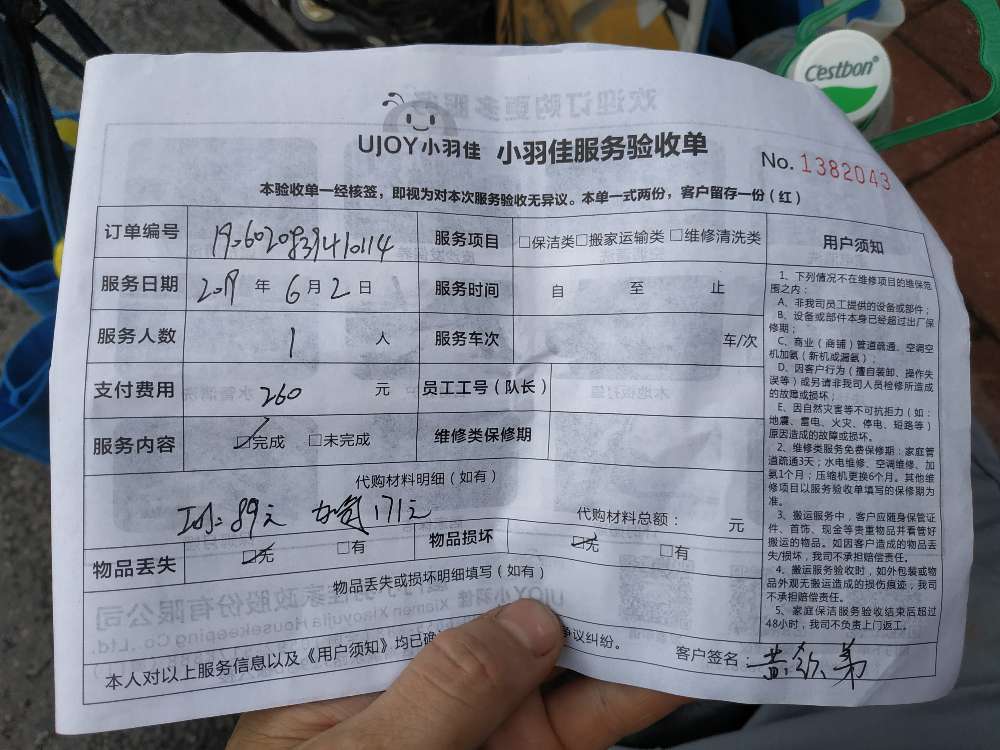 Cestbon
UJOY小羽佳 小羽佳服务验收单
No. 1382043
本验收单一经核签，即视为对本次服务验收无异议。本单一式两份，客户留存一份（红）
订单编号
服务项目 □保洁类□搬家运输类□维修清洗类
服务日期 2019 年 6 月 2 日
服务时间 自 至 止
服务人数 1 人
服务车次 车/次
支付费用 260 元
员工工号（队长）
服务内容 ☑完成 □未完成
维修类保修期
代购材料明细（如有）
89元 171元
代购材料总额： 元
物品丢失 ☑无 □有
物品损坏 ☑无 □有
物品丢失或损坏明细填写（如有）
本人对以上服务信息以及《用户须知》均已确 争议纠纷。
客户签名：
用户须知
1、下列情况不在维修项目的维保范
围之内：
A、非我司员工提供的设备或部件；
B、设备或部件本身已经超过出厂保
修期；
C、商业（商铺）管道疏通、空调空
机加氨（新机或漏氨）；
D、因客户行为（擅自装卸、操作失
误等）或另请非我司人员检修所造成
的故障或损坏；
E、因自然灾害等不可抗拒力（如：
地震、雷电、火灾、停电、短路等）
原因造成的故障或损坏。
2、维修类服务免费保修期：家庭管
道疏通3天；水电维修、空调维修、加
氨1个月；压缩机更换6个月。其他维
修项目以服务验收单填写的保修期为
准。
3、搬运服务中，客户应随身保管证
件、首饰、现金等贵重物品并看管好
搬运的物品。如因客户造成的物品丢
失/损坏，我司不承担赔偿责任。
4、搬运服务验收时，如外包装或物
品外观无搬运造成的损伤痕迹，我司
不承担赔偿责任。
5、家庭保洁服务验收结束后超过
48小时，我司不负责上门返工。